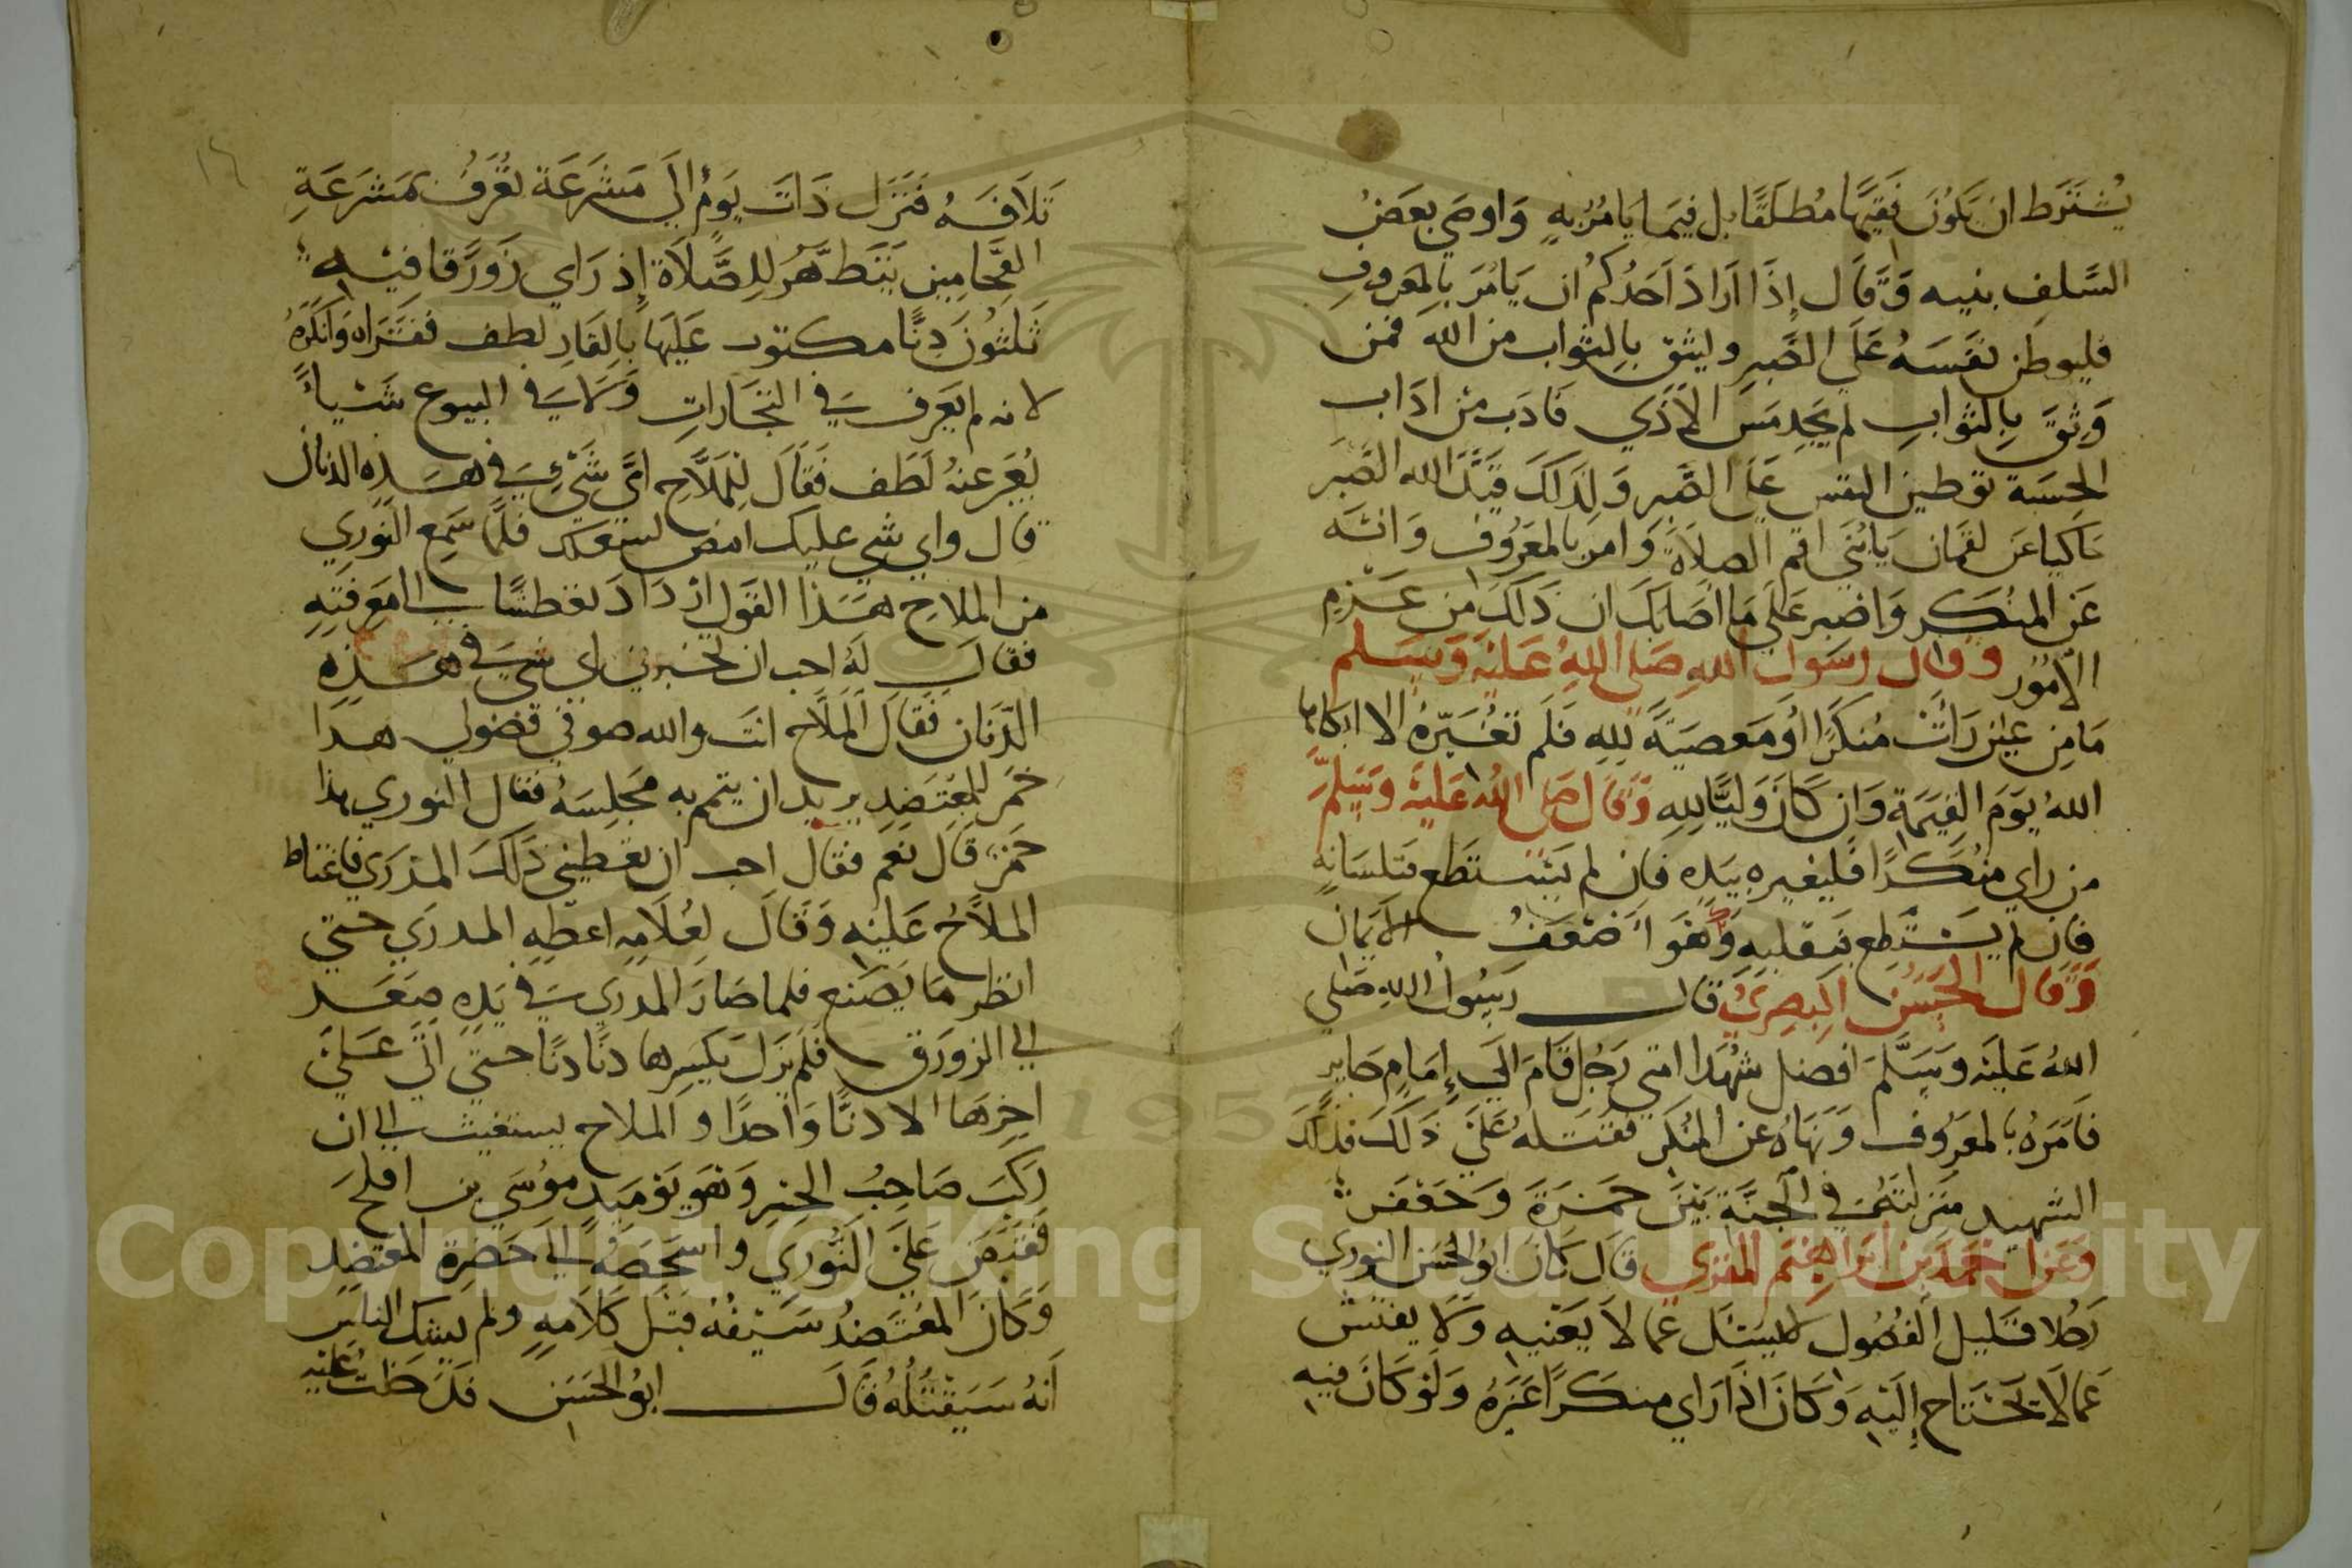 يُشترط ان يكون فقيها مطلقا بل فيما يامر به واوصي بعض
السلف بنيه وقال إذا اراد احدكم ان يامر بالمعروف
فليوطن نفسه على الصبر وليثق بالثواب من الله فمن
وثق بالثواب لم يجد مس الاذي فادب من اداب
الحسبة توطين النفس على الصبر ولذلك الله الصبر
عن لقمان يابني اقم الصلاة وامر بالمعروف وانه
عن المنكر واصبر على ما اصابك ان ذلك من عزم
الامور وقال رسول الله صلى الله عليه وسلم
ما من عين رأت منكرا أو معصية لله فلم تغيره الا ابكاها
الله يوم القيمة وان كان وليا لله وقال صلى الله عليه وسلم
من راي منكرا فليغيره بيده فان لم يستطع فبلسانه
فان لم يستطع فبقلبه وهو اضعف الايمان
وقال الحسن البصري قال رسول الله صلي
الله عليه وسلم افضل شهدا امتي رجل قام الي إمام جاير
فامره بالمعروف ونهاه عن المنكر فقتله على ذلك فذلك
الشهيد منزلته في الجنة بين حمزة وجعفر
وعن احمد بن ابراهيم المقري قال كان ابو الحسن النوري
رجلا قليل الفضول لا يسئل عما لا يعنيه ولا يفتش
عما لا يحتاج إليه وكان اذا راي منكرا غيره ولو كان فيه
١٤
تلافه فنزل ذات يوم إلي مشرعة تعرف بمشرعة
الفحامين يتطهر للصلاة إذ راي زورقا فيه
ثلثون دنا مكتوب عليها بالقار لطف فقراه وانكره
لانه لم يعرف في التجارات ولا في البيوع شيأ
يعبر عنه لطف فقال للملاح اي شيء في هذه الدنان
قال واي شي عليك امض لشغلك فلما سمع النوري
من الملاح هذا القول ازداد تعطشا الي معرفته
فقال له احب ان تخبرني اي شي في هذه
الدنان فقال الملاح انت والله صوفي فضولي هذا
خمر للمعتضد يريد ان يتم به مجلسه فقال النوري هذا
خمر قال نعم فقال احب ان تعطيني ذلك المدري فاغتاظ
الملاح عليه وقال لغلامه اعطه المدري حتي
انظر ما يصنع فلما صار المدري في يده صعد
الي الزورق فلم يزل يكسرها دنا دنا حتي اتي على
اخرها الا دنا واحدا والملاح يستغيث الي ان
ركب صاحب الجسر وهو يوميد موسي بن افلح
فقبض على النوري واشخصه الي حضرة المعتضد
وكان المعتضد سيفه قبل كلامه ولم يشك الناس
انه سيقتله قال ابو الحسن فدخلت عليه
Copyright © King Saud University
1957